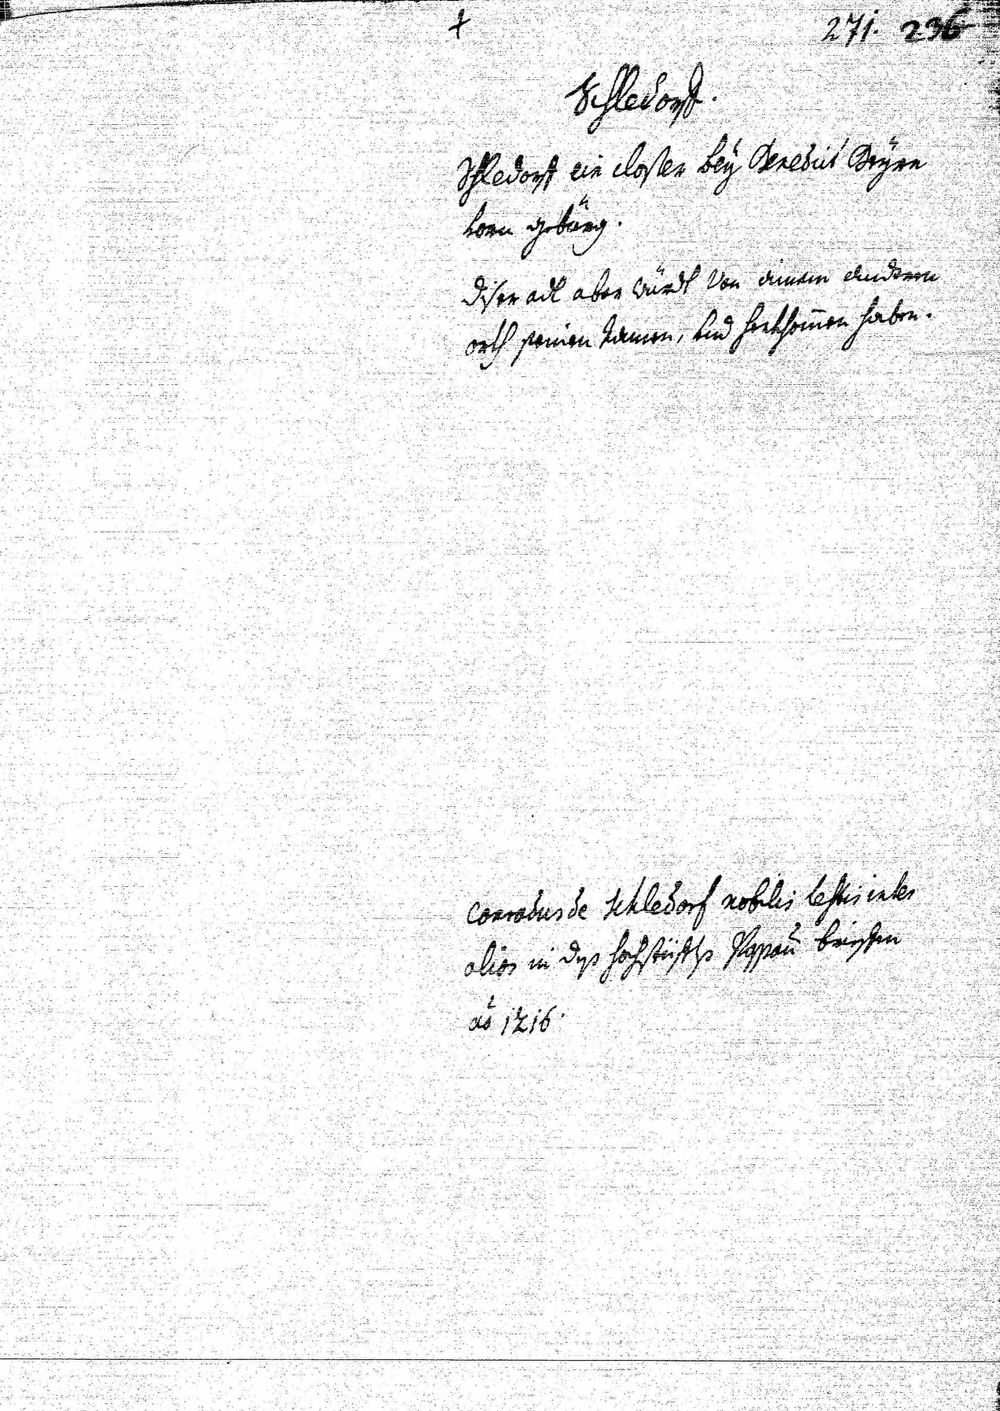 † 271. 236
Schledorf.
Schledorf ein closter bey Benedict Beyrn
vorn gebürg.
diser adl aber würdt von einem anderen
orth seinen namen, und herkhom̄en haben.
Conradus de Schledorf nobilis testis inter
alios in des hochstüffts Passau brieffen
aõ 1216.